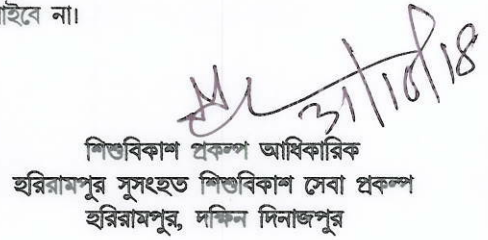 ইবে না।
31/10/18
শিশুবিকাশ প্রকল্প আধিকারিক
হরিরামপুর সুসংহত শিশুবিকাশ সেবা প্রকল্প
হরিরামপুর, দক্ষিন দিনাজপুর